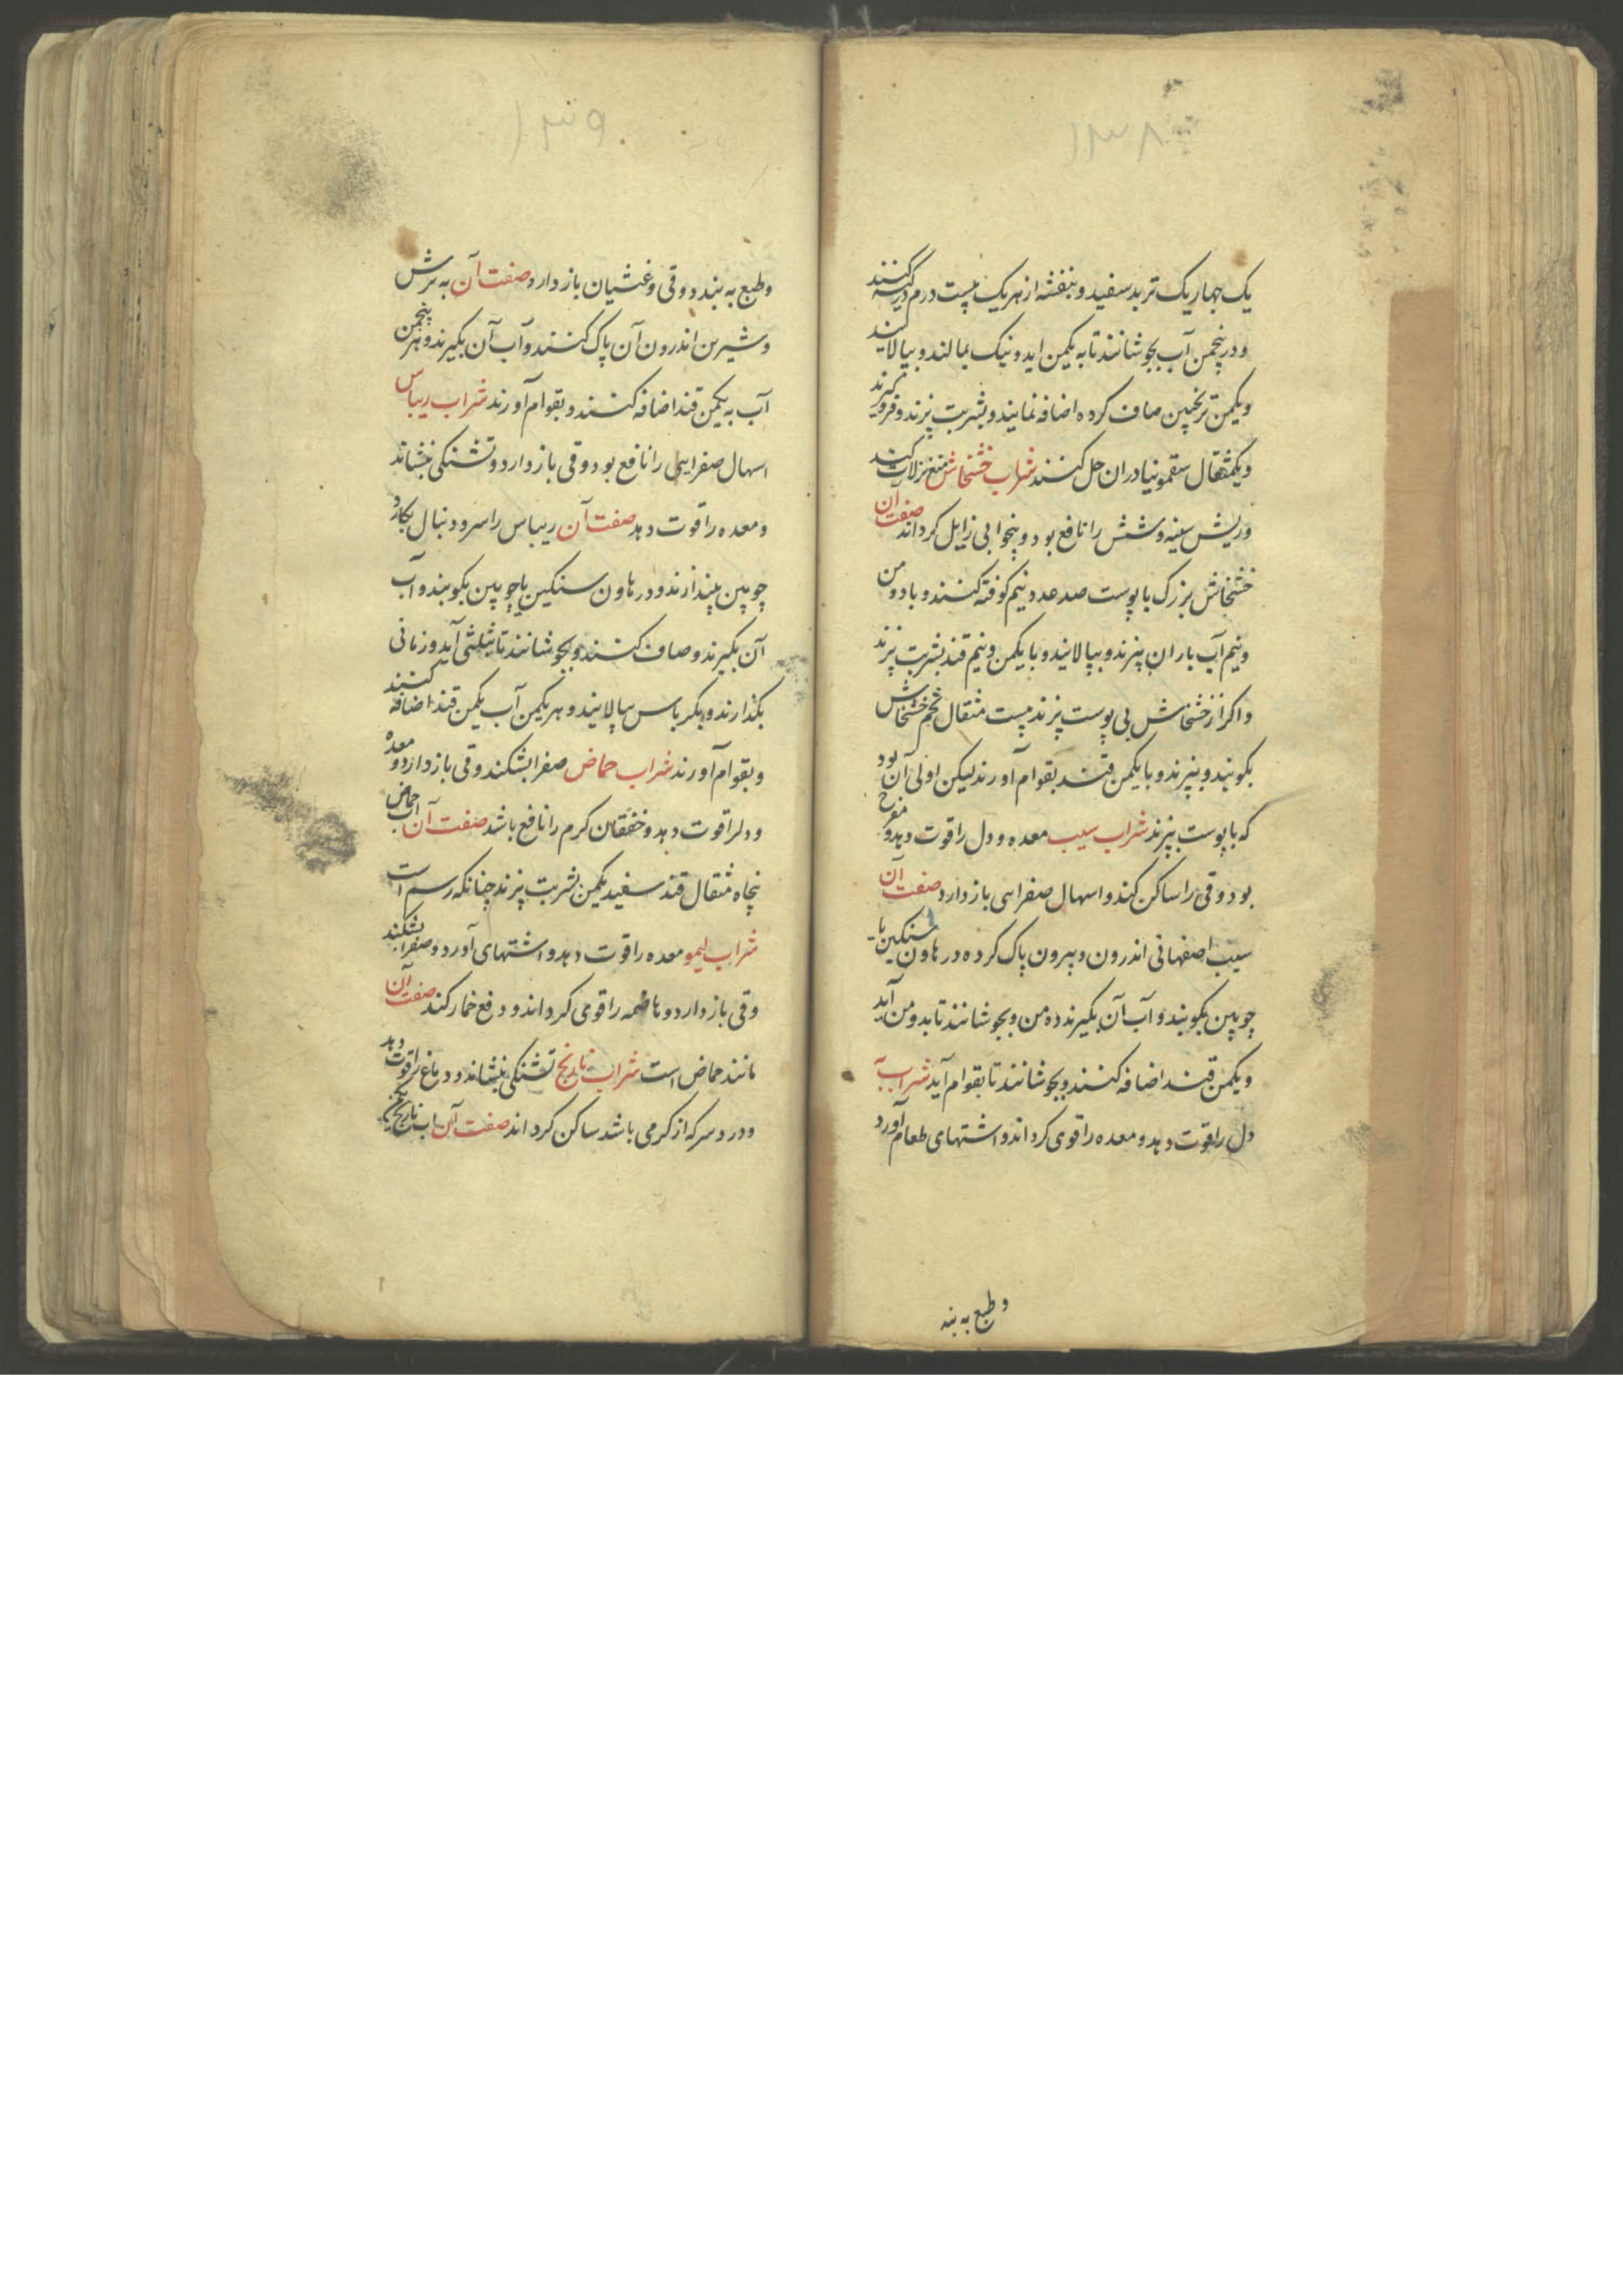 ۱۳۸
یک چهار یک تربد سفید و بنفشه از هر یک بیست درم در کیسه کنند
و در پنجمن آب بجوشانند تا به یکمن اید و نیک بمالند و بپالایند
و یکمن ترنجبین صاف کرده اضافه نمایند و بشربت پزند و فرو گیرند
و یکمثقال سقمونیا دران حل کنند شراب خشخاش منع نزلات کند
و ریش سینه و شش را نافع بود و بیخوابی زایل کرداند صفت آن
خشخاش بزرک با پوست صد عدد نیم کوفته کنند و با دو من
و نیم آب باران بپزند و بپالایند و با یکمن و نیم قند بشربت پزند
و اکر از خشخاش بی پوست پزند بیست مثقال تخم خشخاش
بکوبند و بپزند و با یکمن قند بقوام آورند لیکن اولی آن بود
که با پوست بپزند شراب سیب معده و دل را قوت دهد و مفرح
بود و قی را ساکن کند و اسهال صفراسی باز دارد صفت آن
سیب اصفهانی اندرون و بیرون پاک کرده در هاون سنکین یا
چوبین بکوبند و آب آن بکیرند ده من و بجوشانند تا بدو من آید
و یکمن قند اضافه کنند و بجوشانند تا بقوام آید شراب به
دل را قوت دهد و معده را قوی کرداند و اشتهای طعام آورد
و طبع به بند
۱۳۹
و طبع به بندد و قی و غثیان باز دارد صفت آن به ترش
و شیرین اندرون آن پاک کنند و آب آن بکیرند و هر پنجمن
آب به یکمن قند اضافه کنند و بقوام آورند شراب ریباس
اسهال صفرایی را نافع بود و قی باز دارد و تشنکی بنشاند
و معده را قوت دهد صفت آن ریباس را سر و دنبال بکارد
چوبین بیندازند و در هاون سنکین یا چوبین بکوبند و آب
آن بکیرند و صاف کنند و بجوشانند تا بثلثی آید و زمانی
بکذارند و بکرباس بپالایند و هر یکمن آب یکمن قند اضافه کنند
و بقوام آورند شراب حماض صفرا بشکند و قی باز دارد و معده
و دلرا قوت دهد و خفقان کرم را نافع باشد صفت آن آب حماض
پنجاه مثقال قند سفید یکمن بشربت پزند چنانکه رسم است
شراب لیمو معده را قوت دهد و اشتهای آورد و صفرا بشکند
و قی باز دارد و هاضمه را قوی کرداند و دفع خمار کند صفت آن
مانند حماض است شراب نارنج تشنکی بنشاند و دماغ را قوت دهد
و درد سر که از کرمی باشد ساکن کرداند صفت آن آب نارنج